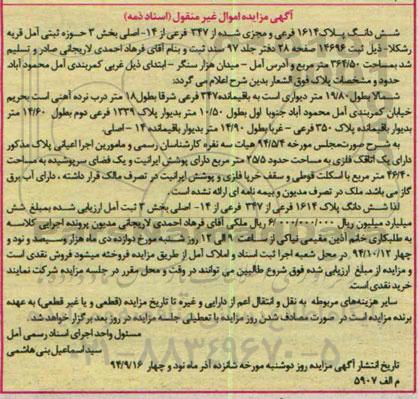 آگهی مزایده اموال غیر منقول (اسناد ذمه)
شش دانگ پلاک ۱۶۱۴ فرعی و مجزی شده از ۳۴۷ فرعی از ۱۴- اصلی بخش ۳ حوزه ثبتی آمل قریه
رشکلا- ذیل ثبت ۱۴۶۹۶ صفحه ۲۸ دفتر جلد ۹۷ سند ثبت و بنام آقای فرهاد احمدی لاریجانی صادر و تسلیم
شد بمساحت ۳۶۴/۵۰ متر مربع و آدرس آمل - میدان هزار سنگر - ابتدای ذیل غربی کمربندی آمل محمود آباد
حدود و مشخصات پلاک فوق الشعار بدین شرح اعلام می گردد:
شمالا بطول ۱۹/۸۰ متر دیواری است به باقیمانده ۳۴۷ فرعی شرقا بطول ۱۸ متر درب نرده آهنی است بحریم
خیابان کمربندی آمل محمود آباد جنوبا اول بطول ۱۰/۵۰ متر بدیوار پلاک ۱۳۳۹ فرعی دوم بطول ۱۴/۶۰ متر
بدیوار باقیمانده پلاک ۳۵۰ فرعی - غربا بطول ۱۴/۹۰ متر بدیوار باقیمانده ۱۴ - اصلی.
به شرح صورتمجلس مورخه ۹۴/۵/۴ هیات سه نفره کارشناسان رسمی و مامورین اجرا اعیانی پلاک مذکور
دارای یک اتاقک فلزی به مساحت حدود ۲۵/۵ متر مربع دارای پوشش ایرانیت و یک فضای سرپوشیده به مساحت
۴۶/۴۰ متر مربع با اسکلت قوطی و سقف خرپا فلزی و پوشش ایرانیت در تصرف مالک قرار داشته ، دارای آب برق
گاز می باشد. ملک در تصرف مدیون و بیمه نامه ای ارائه نشده است.
لذا شش دانگ پلاک ۱۶۱۴ فرعی از ۳۴۷ فرعی از ۱۴- اصلی بخش ۳ ثبت آمل ارزیابی شده بمبلغ شش
میلیارد میلیون ریال ۶/۰۰۰/۰۰۰/۰۰۰ ریال ملکی آقای فرهاد احمدی لاریجانی مدیون پرونده اجرایی کلاسه
به طلبکاری خانم آذین مقیمی نیاکی از ساعت ۹ الی ۱۲ روز شنبه مورخ دوازده دی ماه هزار و سیصد و نود و
چهار ۹۴/۱۰/۱۲ در محل شعبه اجرا ثبت اسناد و املاک آمل از طریق مزایده فروخته میشود فروش نقدی است
و مزایده از مبلغ ارزیابی شده فوق شروع طالبین می توانند در وقت و محل مقرر در جلسه مزایده شرکت نمایند
خرید نقدی است.
سایر هزینه‌های مربوطه به نقل و انتقال اعم از دارایی و غیره تا تاریخ مزایده (قطعی و یا غیر قطعی) به عهده
برنده مزایده است در صورت مصادف شدن روز مزایده با تعطیلی جلسه مزایده در روز بعد برگزار خواهد شد.
مسئول واحد اجرای اسناد رسمی آمل
سید اسماعیل بنی هاشمی
تاریخ انتشار آگهی مزایده روز دوشنبه مورخه شانزده آذر ماه نود و چهار ۹۴/۹/۱۶
م الف ۵۹۰۷
۰۲۱-۸۸۳۴۹۶۷۰-۵